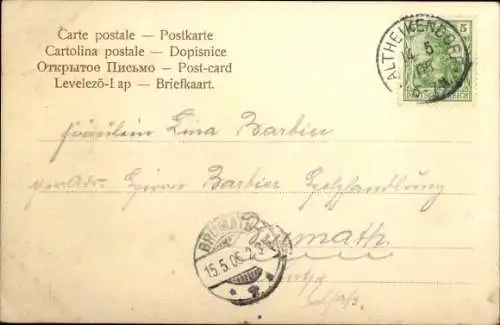 Carte postale — Postkarte
Cartolina postale — Dopisnice
Открытое Письмо — Post-card
Levelező-Lap — Briefkaart.
ALTHEIKENDORF
14.5
5
Fräulein Lina Barbier
per Adr. Barbier Holzhandlung
Brumath.
BRUMATH
15.5.05. 2-3
Elsaß.